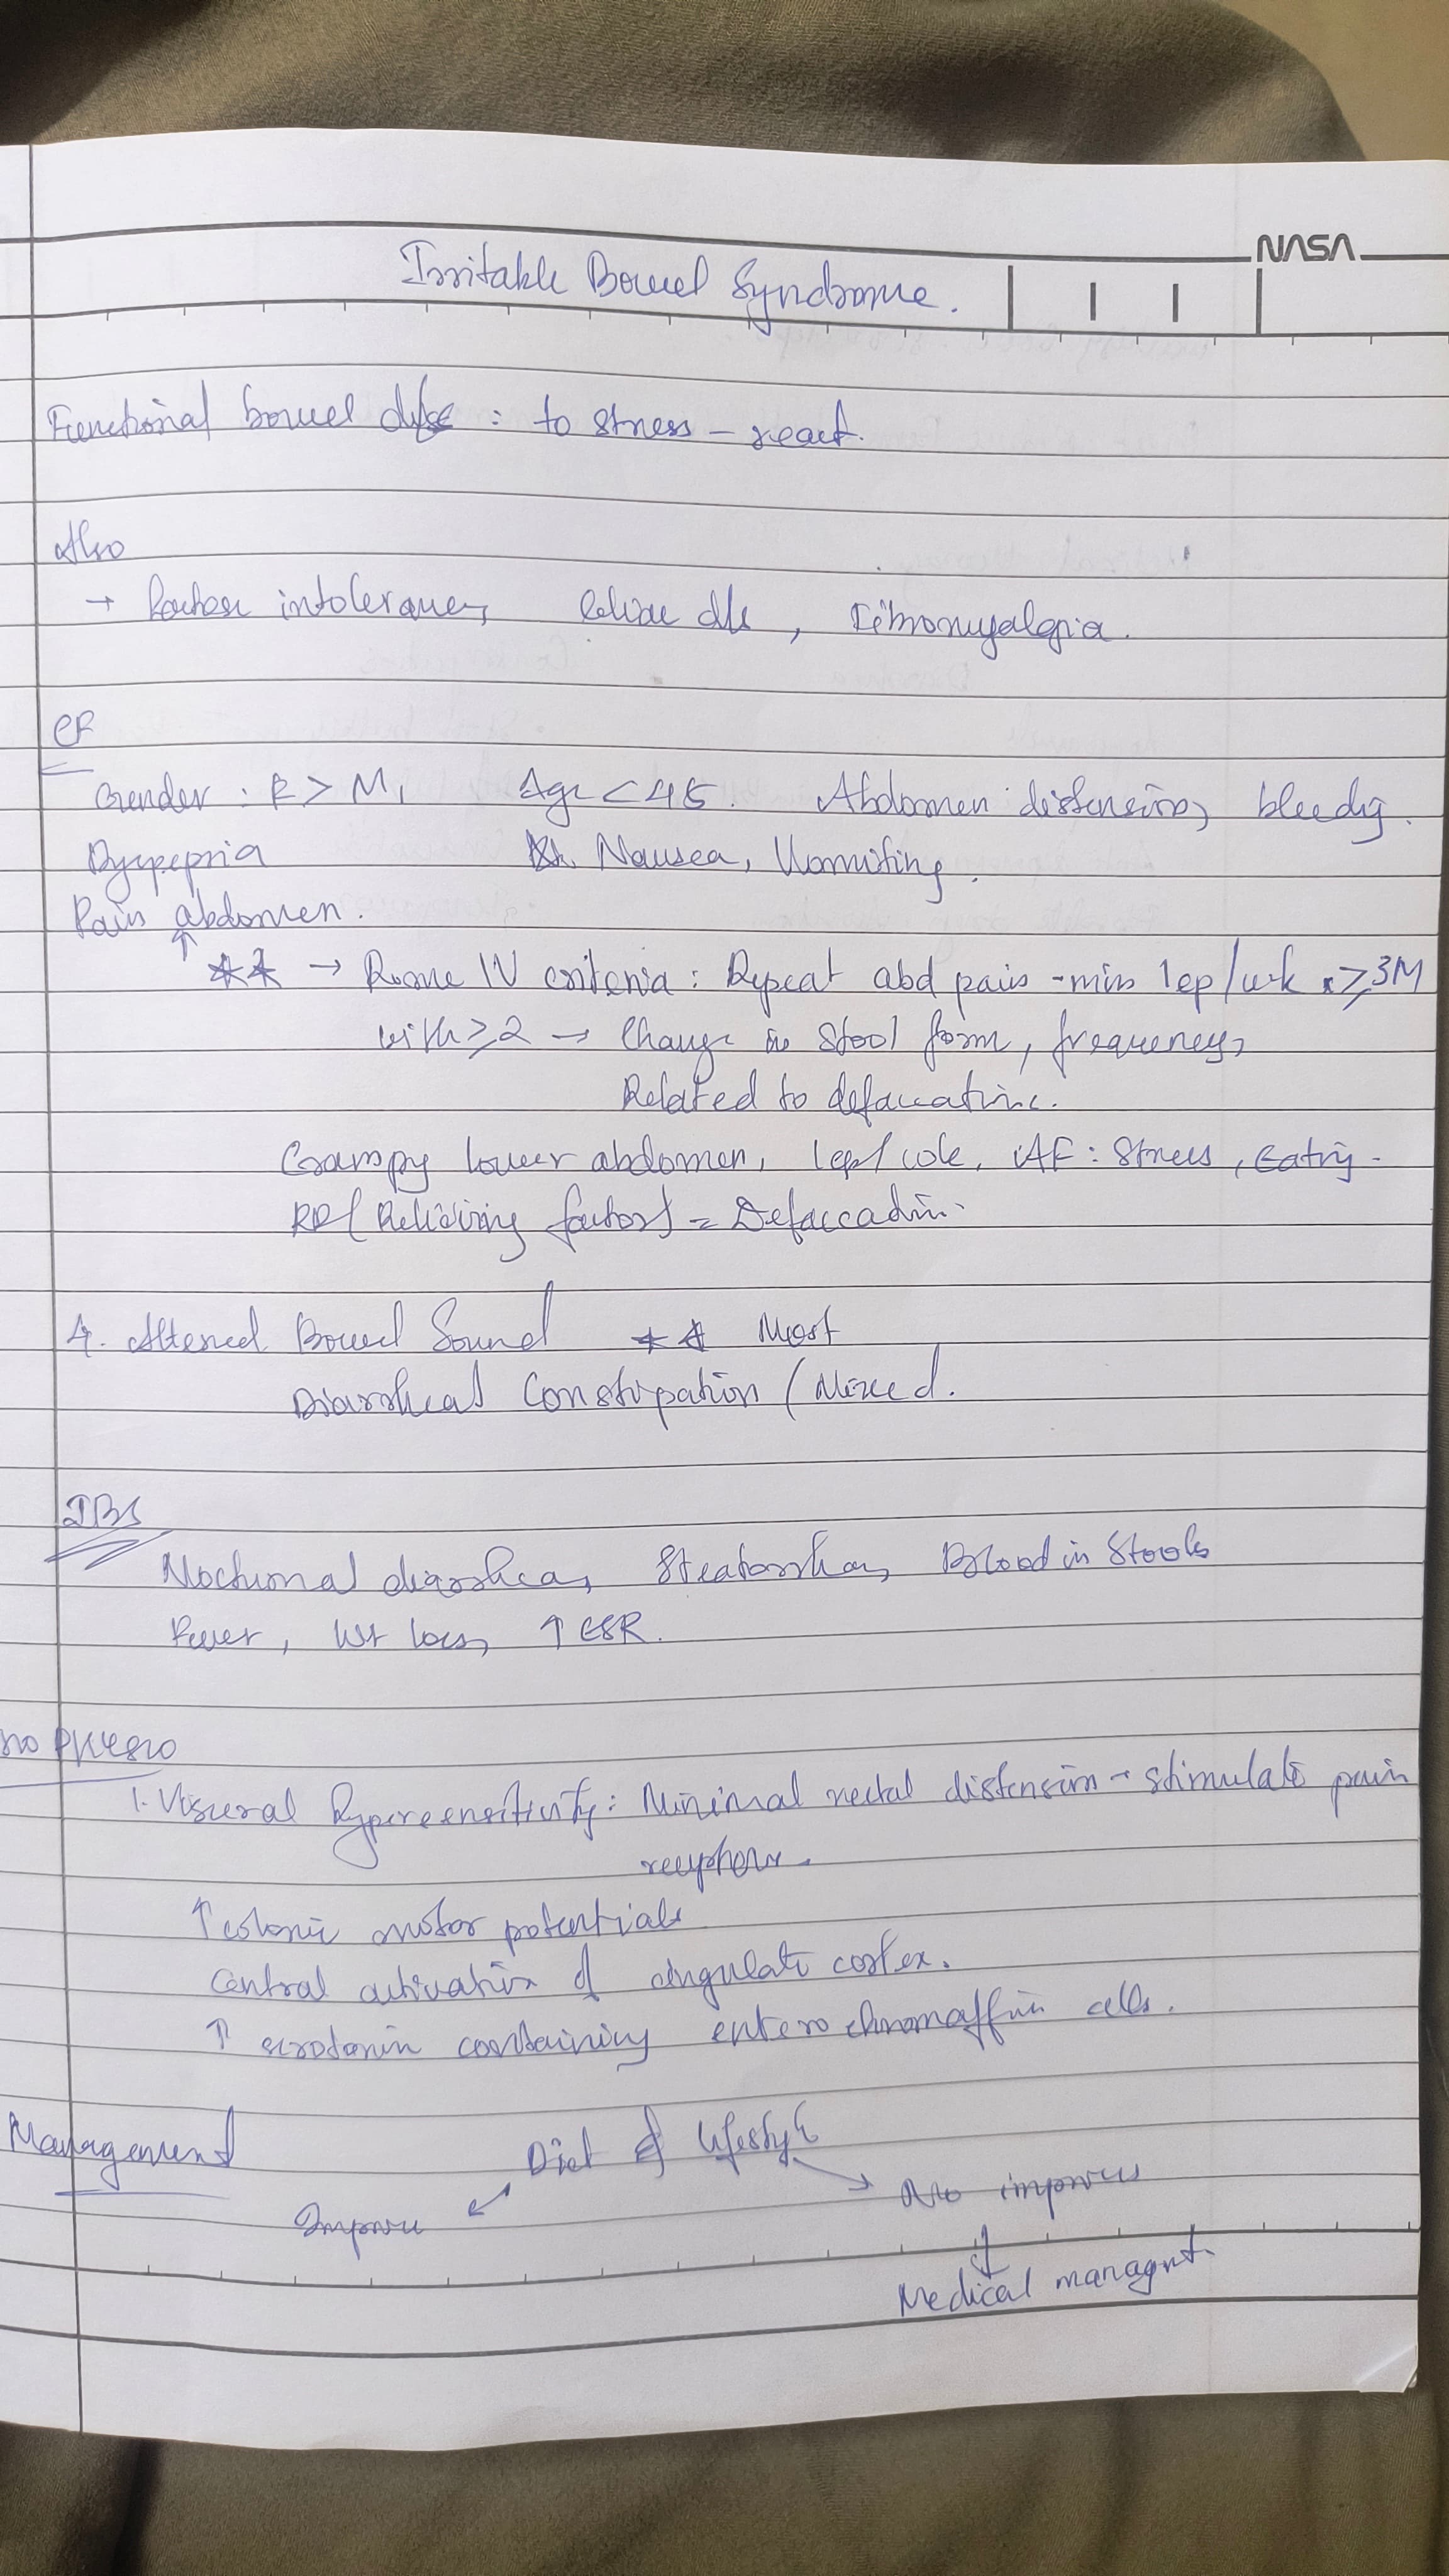 NASA
Irritable Bowel Syndrome.
Functional bowel : to stress - react.
Also
→ intolerance, Celiac d/s, Fibromyalgia.
CF
Gender : F > M, Age < 45. Abdomen distension, bleedig.
Dyspepsia Nausea, Vomiting.
Pain abdomen.
↑ ** → Rome IV criteria : Repeat abd pain - min 1ep/wk x ≥ 3M
with ≥ 2 → Change in Stool form, frequency,
Related to defaecation.
Crampy lower abdomen, 1ep/wk, AF : Stress, Eatig.
RF (Relieving factor) = Defaecation.
4. Altered Bowel Sound ** Most
Diarrhea/ Constipation / Mixed.
IBS
Nocturnal diarrhea, Steatorrhea, Blood in Stools
Fever, Wt loss, ↑ ESR.
1. Visceral Hypersensitivity : Minimal rectal distension → stimulate pain
receptors.
↑ colonic motor potentials
Central activation of cingulate cortex.
↑ serotonin containing enterochromaffin cells.
Management Diet & lifestyle
Improve No improves
↓
Medical managnt.